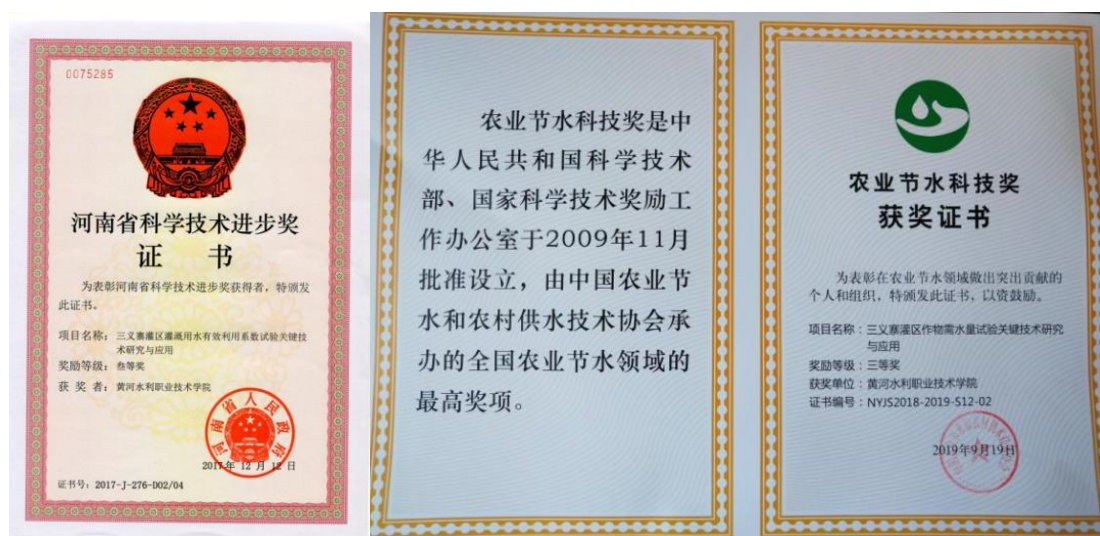 0075285
河南省科学技术进步奖
证 书
为表彰河南省科学技术进步奖获得者，特颁发
此证书。
项目名称：三义寨灌区灌溉用水有效利用系数试验关键技
术研究与应用
奖励等级：叁等奖
获 奖 者：黄河水利职业技术学院
河南省人民政府
2017年 12 月 12 日
证书号：2017-J-276-D02/04
农业节水科技奖是中
华人民共和国科学技术
部、国家科学技术奖励工
作办公室于2009年11月
批准设立，由中国农业节
水和农村供水技术协会承
办的全国农业节水领域的
最高奖项。
农业节水科技奖
获奖证书
为表彰在农业节水领域做出突出贡献的
个人和组织，特颁发此证书，以资鼓励。
项目名称：三义寨灌区作物需水量试验关键技术研究
与应用
奖励等级：三等奖
获奖单位：黄河水利职业技术学院
证书编号：NYJS2018-2019-S12-02
2019年9月19日